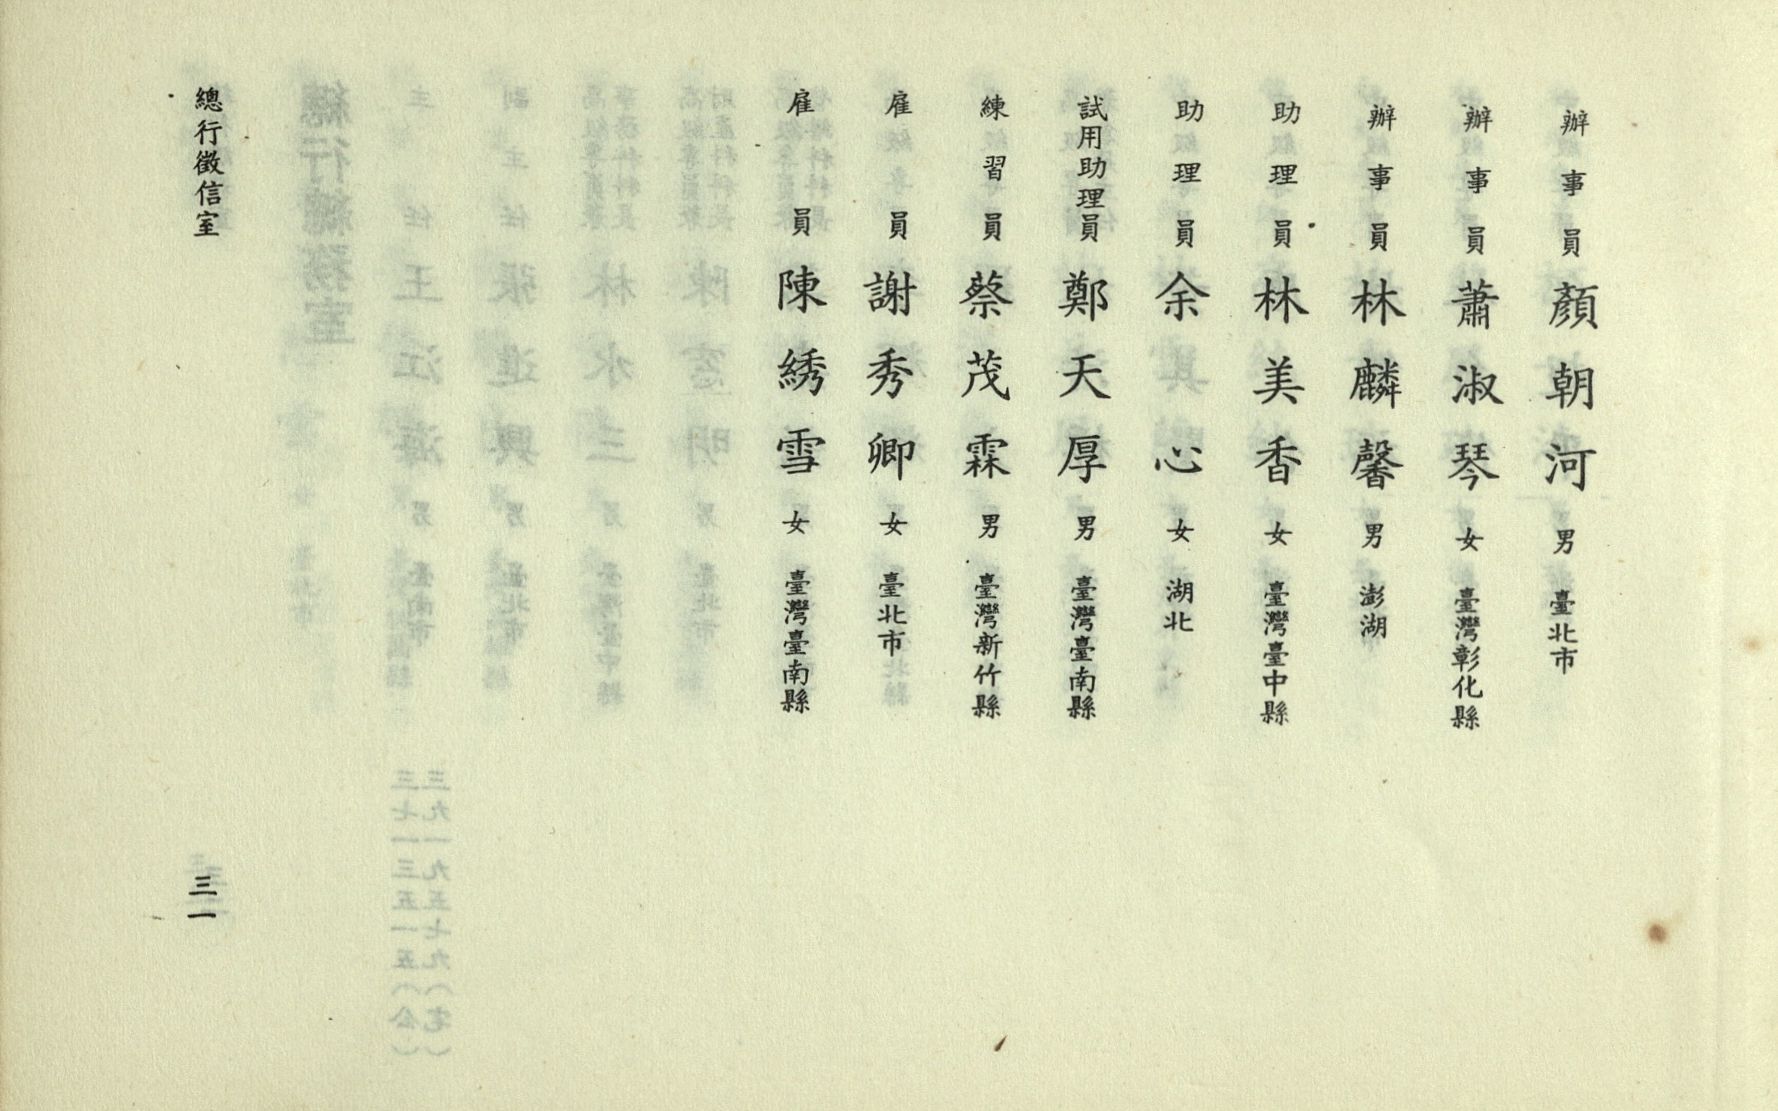 辦事員 顏朝河 男 臺北市
辦事員 蕭淑琴 女 臺灣彰化縣
辦事員 林麟馨 男 澎湖
助理員 林美香 女 臺灣臺中縣
助理員 余心 女 湖北
試用助理員 鄭天厚 男 臺灣臺南縣
練習員 蔡茂霖 男 臺灣新竹縣
雇員 謝秀卿 女 臺北市
雇員 陳綉雪 女 臺灣臺南縣
總行徵信室
三一